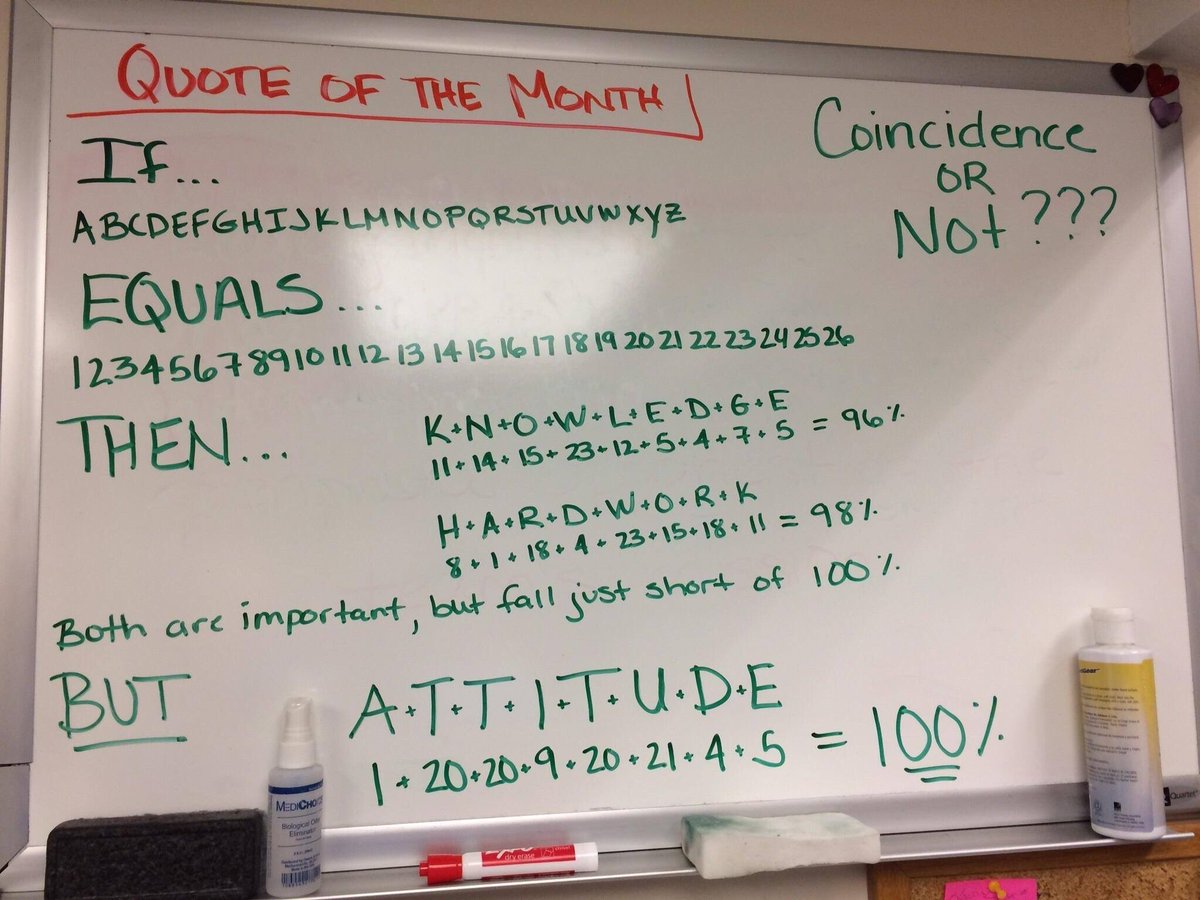 QUOTE OF THE MONTH
If...
ABCDEFGHIJKLMNOPQRSTUVWXYZ
EQUALS...
1 2 3 4 5 6 7 8 9 10 11 12 13 14 15 16 17 18 19 20 21 22 23 24 25 26
Coincidence
OR
Not ???
THEN...
K+N+O+W+L+E+D+G+E
11+14+15+23+12+5+4+7+5 = 96%
H+A+R+D+W+O+R+K
8+1+18+4+23+15+18+11 = 98%
Both are important, but fall just short of 100%
BUT
A+T+T+I+T+U+D+E
1+20+20+9+20+21+4+5 = 100%
Biological Odor
Eliminator
dry erase
Quartet